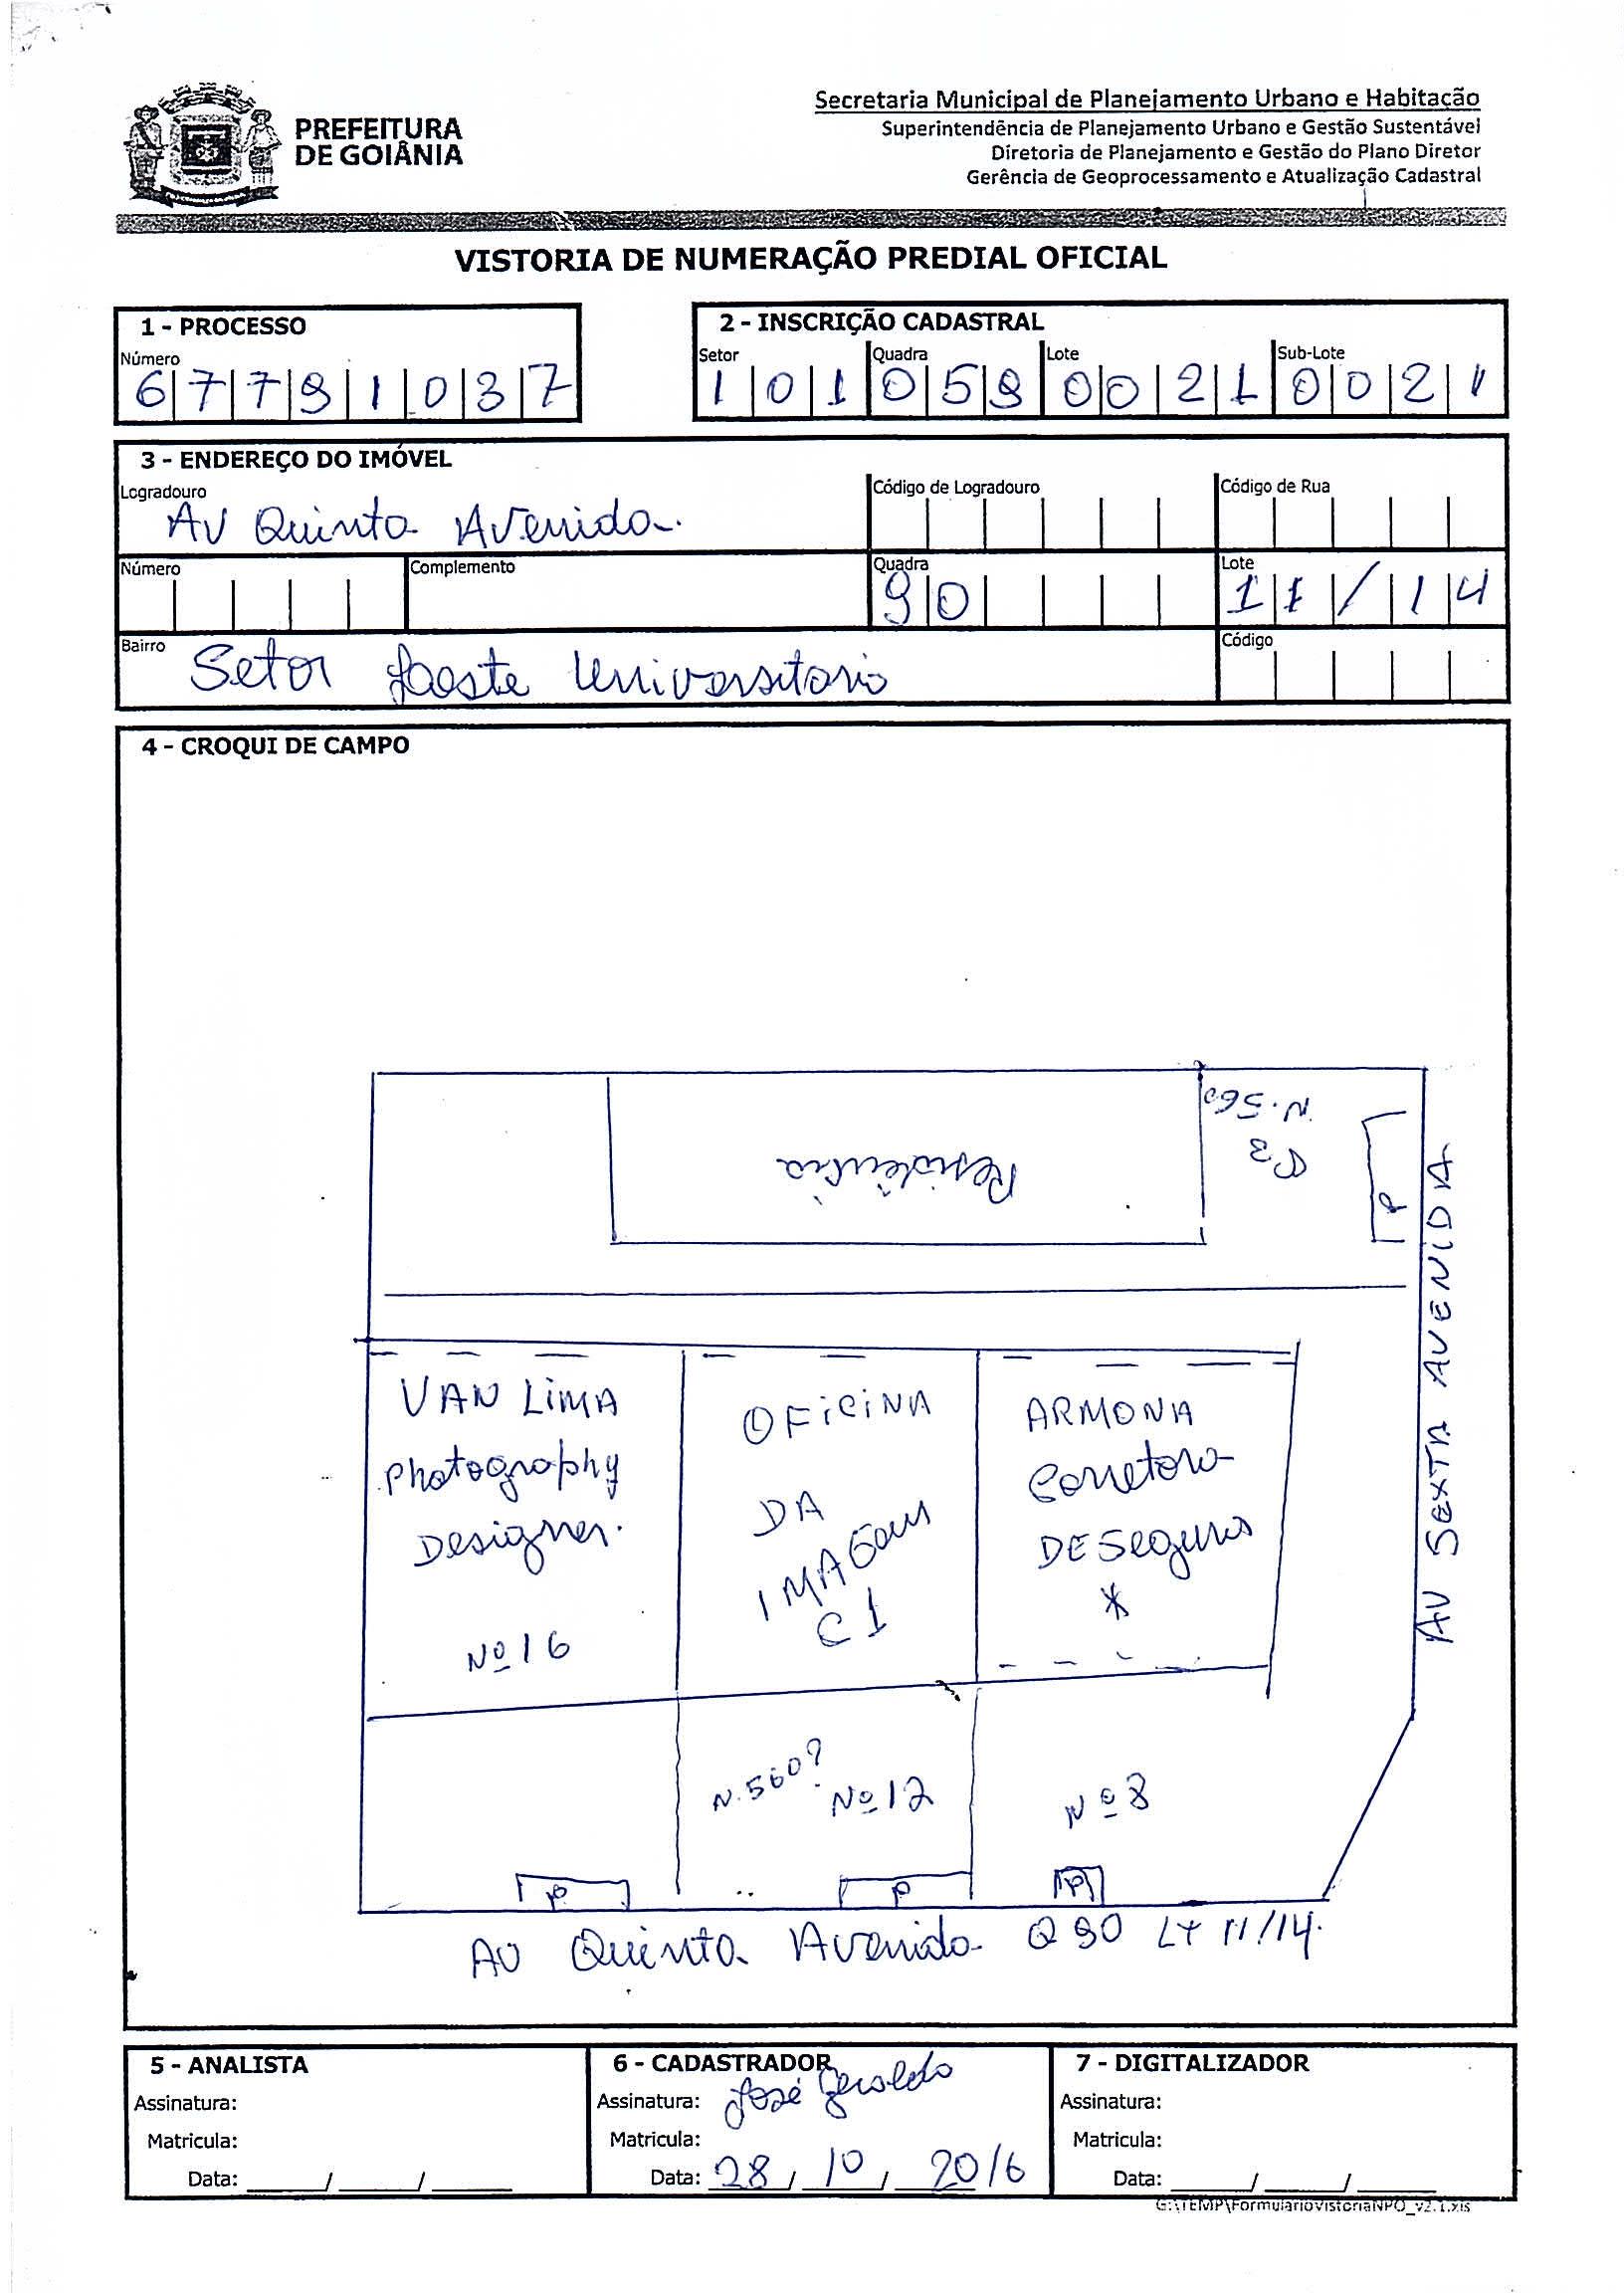 PREFEITURA
DE GOIÂNIA
Secretaria Municipal de Planejamento Urbano e Habitação
Superintendência de Planejamento Urbano e Gestão Sustentável
Diretoria de Planejamento e Gestão do Plano Diretor
Gerência de Geoprocessamento e Atualização Cadastral
VISTORIA DE NUMERAÇÃO PREDIAL OFICIAL
1 - PROCESSO
Número
67791037
2 - INSCRIÇÃO CADASTRAL
Setor Quadra Lote Sub-Lote
101 059 0021 0021
3 - ENDEREÇO DO IMÓVEL
Logradouro Código de Logradouro Código de Rua
Av Quinta Avenida.
Número Complemento Quadra Lote
90 11/14
Bairro Código
Setor Leste Universitario
4 - CROQUI DE CAMPO
N. 560
C3
Residência
P
AV SEXTA AVENIDA
VAN LIMA
Photography
Designer.
Nº 16
OFICINA
DA
IMAGEM
C1
ARMONA
Corretora
DE Seguros
*
N. 560?
Nº 12
Nº 8
P P P
AV Quinta Avenida Q 90 LT 11/14.
5 - ANALISTA
Assinatura:
Matricula:
Data: / /
6 - CADASTRADOR
Assinatura: José Geraldo
Matricula:
Data: 28 / 10 / 2016
7 - DIGITALIZADOR
Assinatura:
Matricula:
Data: / /
G:\TEMP\FormularioVistoriaNPO_v2.1.xls